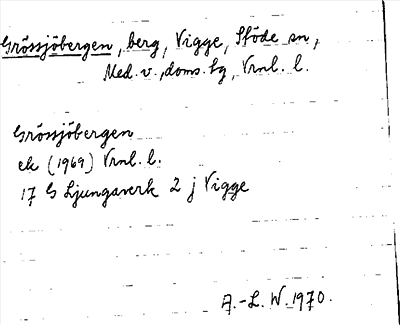 Grössjöbergen, berg, Vigge, Stöde sn,
Med. v., doms. tg, Vrnl. l.
Grössjöbergen
ek (1969) Vrnl. l.
17 G Ljungaverk 2 j Vigge
A.-L. W. 1970.